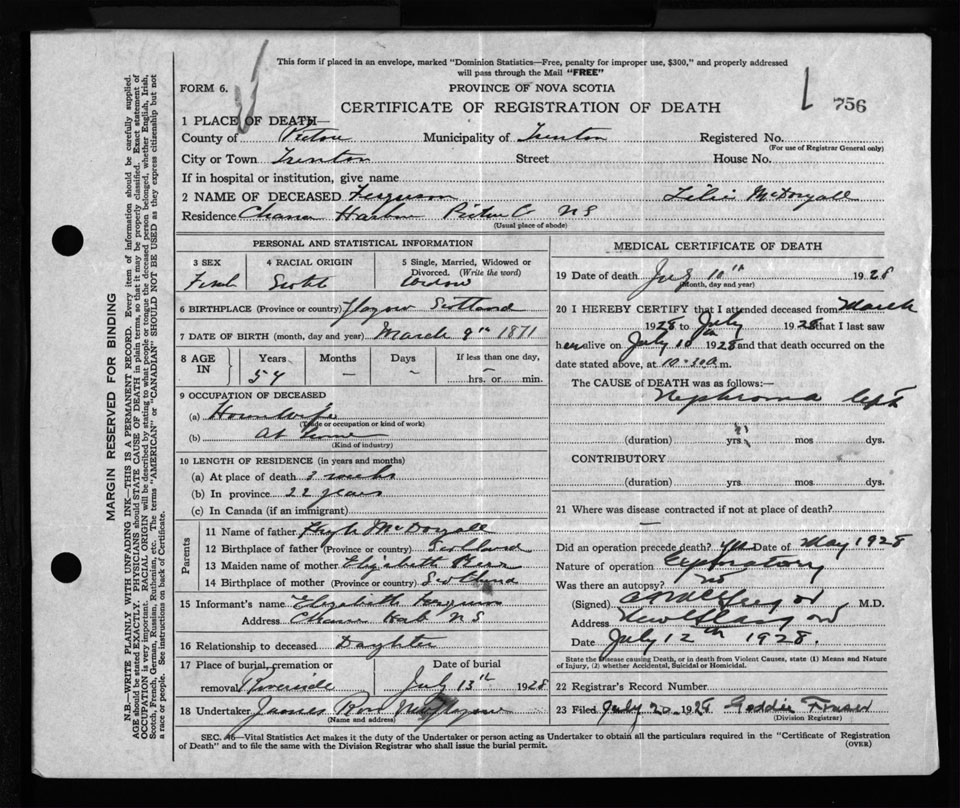 This form if placed in an envelope, marked "Dominion Statistics—Free, penalty for improper use, $300," and properly addressed
will pass through the Mail "FREE"
FORM 6.
PROVINCE OF NOVA SCOTIA
CERTIFICATE OF REGISTRATION OF DEATH
756
1 PLACE OF DEATH—
County of Pictou Municipality of Trenton Registered No.
(For use of Registrar General only)
City or Town Trenton Street House No.
If in hospital or institution, give name
2 NAME OF DECEASED Ferguson Lilie McDougall
Residence Chance Harbour Pictou Co NS
(Usual place of abode)
PERSONAL AND STATISTICAL INFORMATION
3 SEX 4 RACIAL ORIGIN 5 Single, Married, Widowed or Divorced. (Write the word)
Scotch Widow
6 BIRTHPLACE (Province or country) Glasgow Scotland
7 DATE OF BIRTH (month, day and year) March 9th 1871
8 AGE IN Years Months Days If less than one day,
57 — — hrs. or min.
9 OCCUPATION OF DECEASED
(a) Housewife
(Trade or occupation or kind of work)
(b) At home
(Kind of industry)
10 LENGTH OF RESIDENCE (in years and months)
(a) At place of death 3 weeks
(b) In province 22 years
(c) In Canada (if an immigrant)
Parents
11 Name of father Hugh McDougall
12 Birthplace of father (Province or country) Scotland
13 Maiden name of mother Elizabeth
14 Birthplace of mother (Province or country) Scotland
15 Informant's name Elizabeth Ferguson
Address Chance Harb NS
16 Relationship to deceased Daughter
17 Place of burial, cremation or removal Riverside Date of burial July 13th 1928
18 Undertaker James New Glasgow
(Name and address)
MEDICAL CERTIFICATE OF DEATH
19 Date of death July 10th 1928
(Month, day and year)
20 I HEREBY CERTIFY that I attended deceased from March
1928 to July 1928 that I last saw
her alive on July 10 1928 and that death occurred on the
date stated above, at 10.30 a. m.
The CAUSE of DEATH was as follows:—
Nephroma left
(duration) yrs. mos dys.
CONTRIBUTORY
(duration) yrs mos dys.
21 Where was disease contracted if not at place of death?
—
Did an operation precede death? yes Date of May 1928
Nature of operation Exploratory
Was there an autopsy? no
(Signed) M.D.
Address New Glasgow
Date July 12th 1928.
State the Disease causing Death, or in death from Violent Causes, state (1) Means and Nature
of Injury, (2) whether Accidental, Suicidal or Homicidal.
22 Registrar's Record Number
23 Filed July 20 1928 Geddie Fraser
(Division Registrar)
SEC. 46—Vital Statistics Act makes it the duty of the Undertaker or person acting as Undertaker to obtain all the particulars required in the "Certificate of Registration
of Death" and to file the same with the Division Registrar who shall issue the burial permit.
(OVER)
MARGIN RESERVED FOR BINDING
N.B.—WRITE PLAINLY WITH UNFADING INK—THIS IS A PERMANENT RECORD. Every item of information should be carefully supplied.
AGE should be stated EXACTLY. PHYSICIANS should STATE CAUSE OF DEATH in plain terms, so that it may be properly classified. Exact statement of
OCCUPATION is very important. RACIAL ORIGIN will be described by stating to what people or tongue the deceased person belonged, whether English, Irish,
Scotch, French, German, Russian, Ruthenian, etc. The terms "AMERICAN" or "CANADIAN" SHOULD NOT BE USED as they express citizenship but not
a race or people. See instructions on back of Certificate.